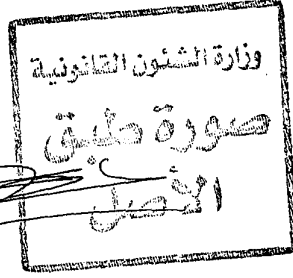 وزارة الشئون القانونية
صورة طبق
الأصل